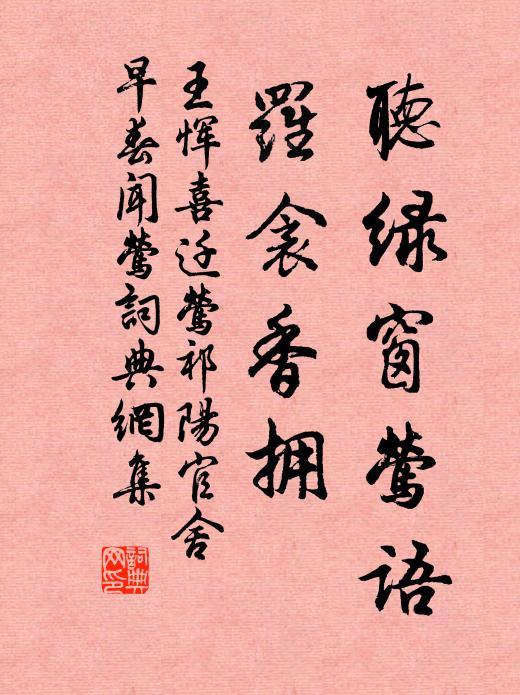 聽緑窗鶯語
羅衾香拥
王惲喜迁鶯祁陽官舍
早春聞鶯詞典網集
詞典網印